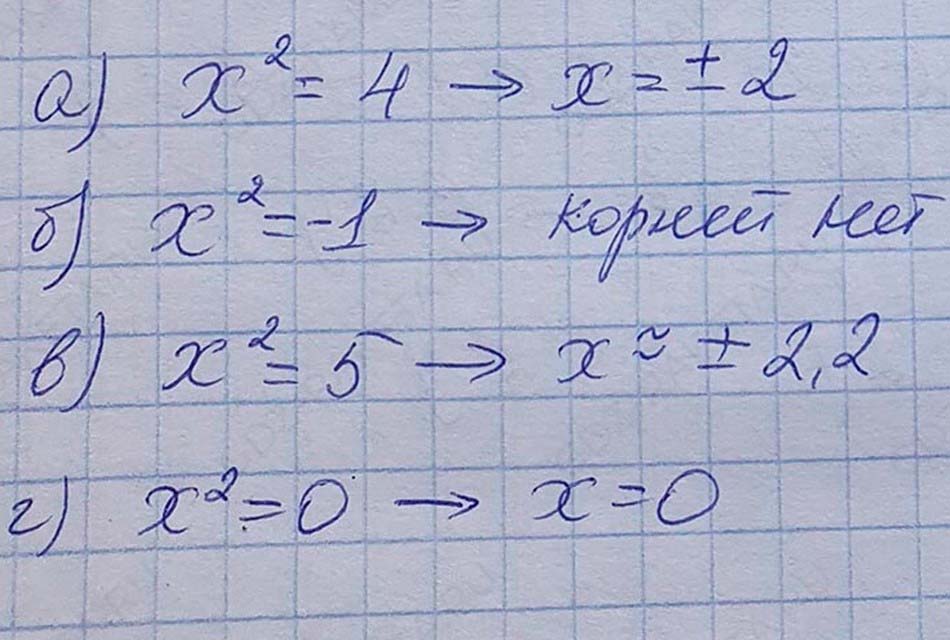 а) x² = 4 → x = ± 2
б) x² = -1 → корней нет
в) x² = 5 → x ≈ ± 2,2
г) x² = 0 → x = 0